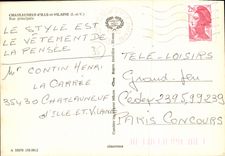 CHATEAUNEUF-D'ILLE-et-VILAINE (I.-et-V.)
Rue principale
LE STYLE EST
LE VÊTEMENT DE
LA PENSÉE
Mr CONTIN HENRI
LA CARRÉE
35430 CHATEAUNEUF
D'ILLE ET VILAINE
TELE-LOISIRS
Grand-Jeu
Cedex 2395 99239
PARIS CONCOURS